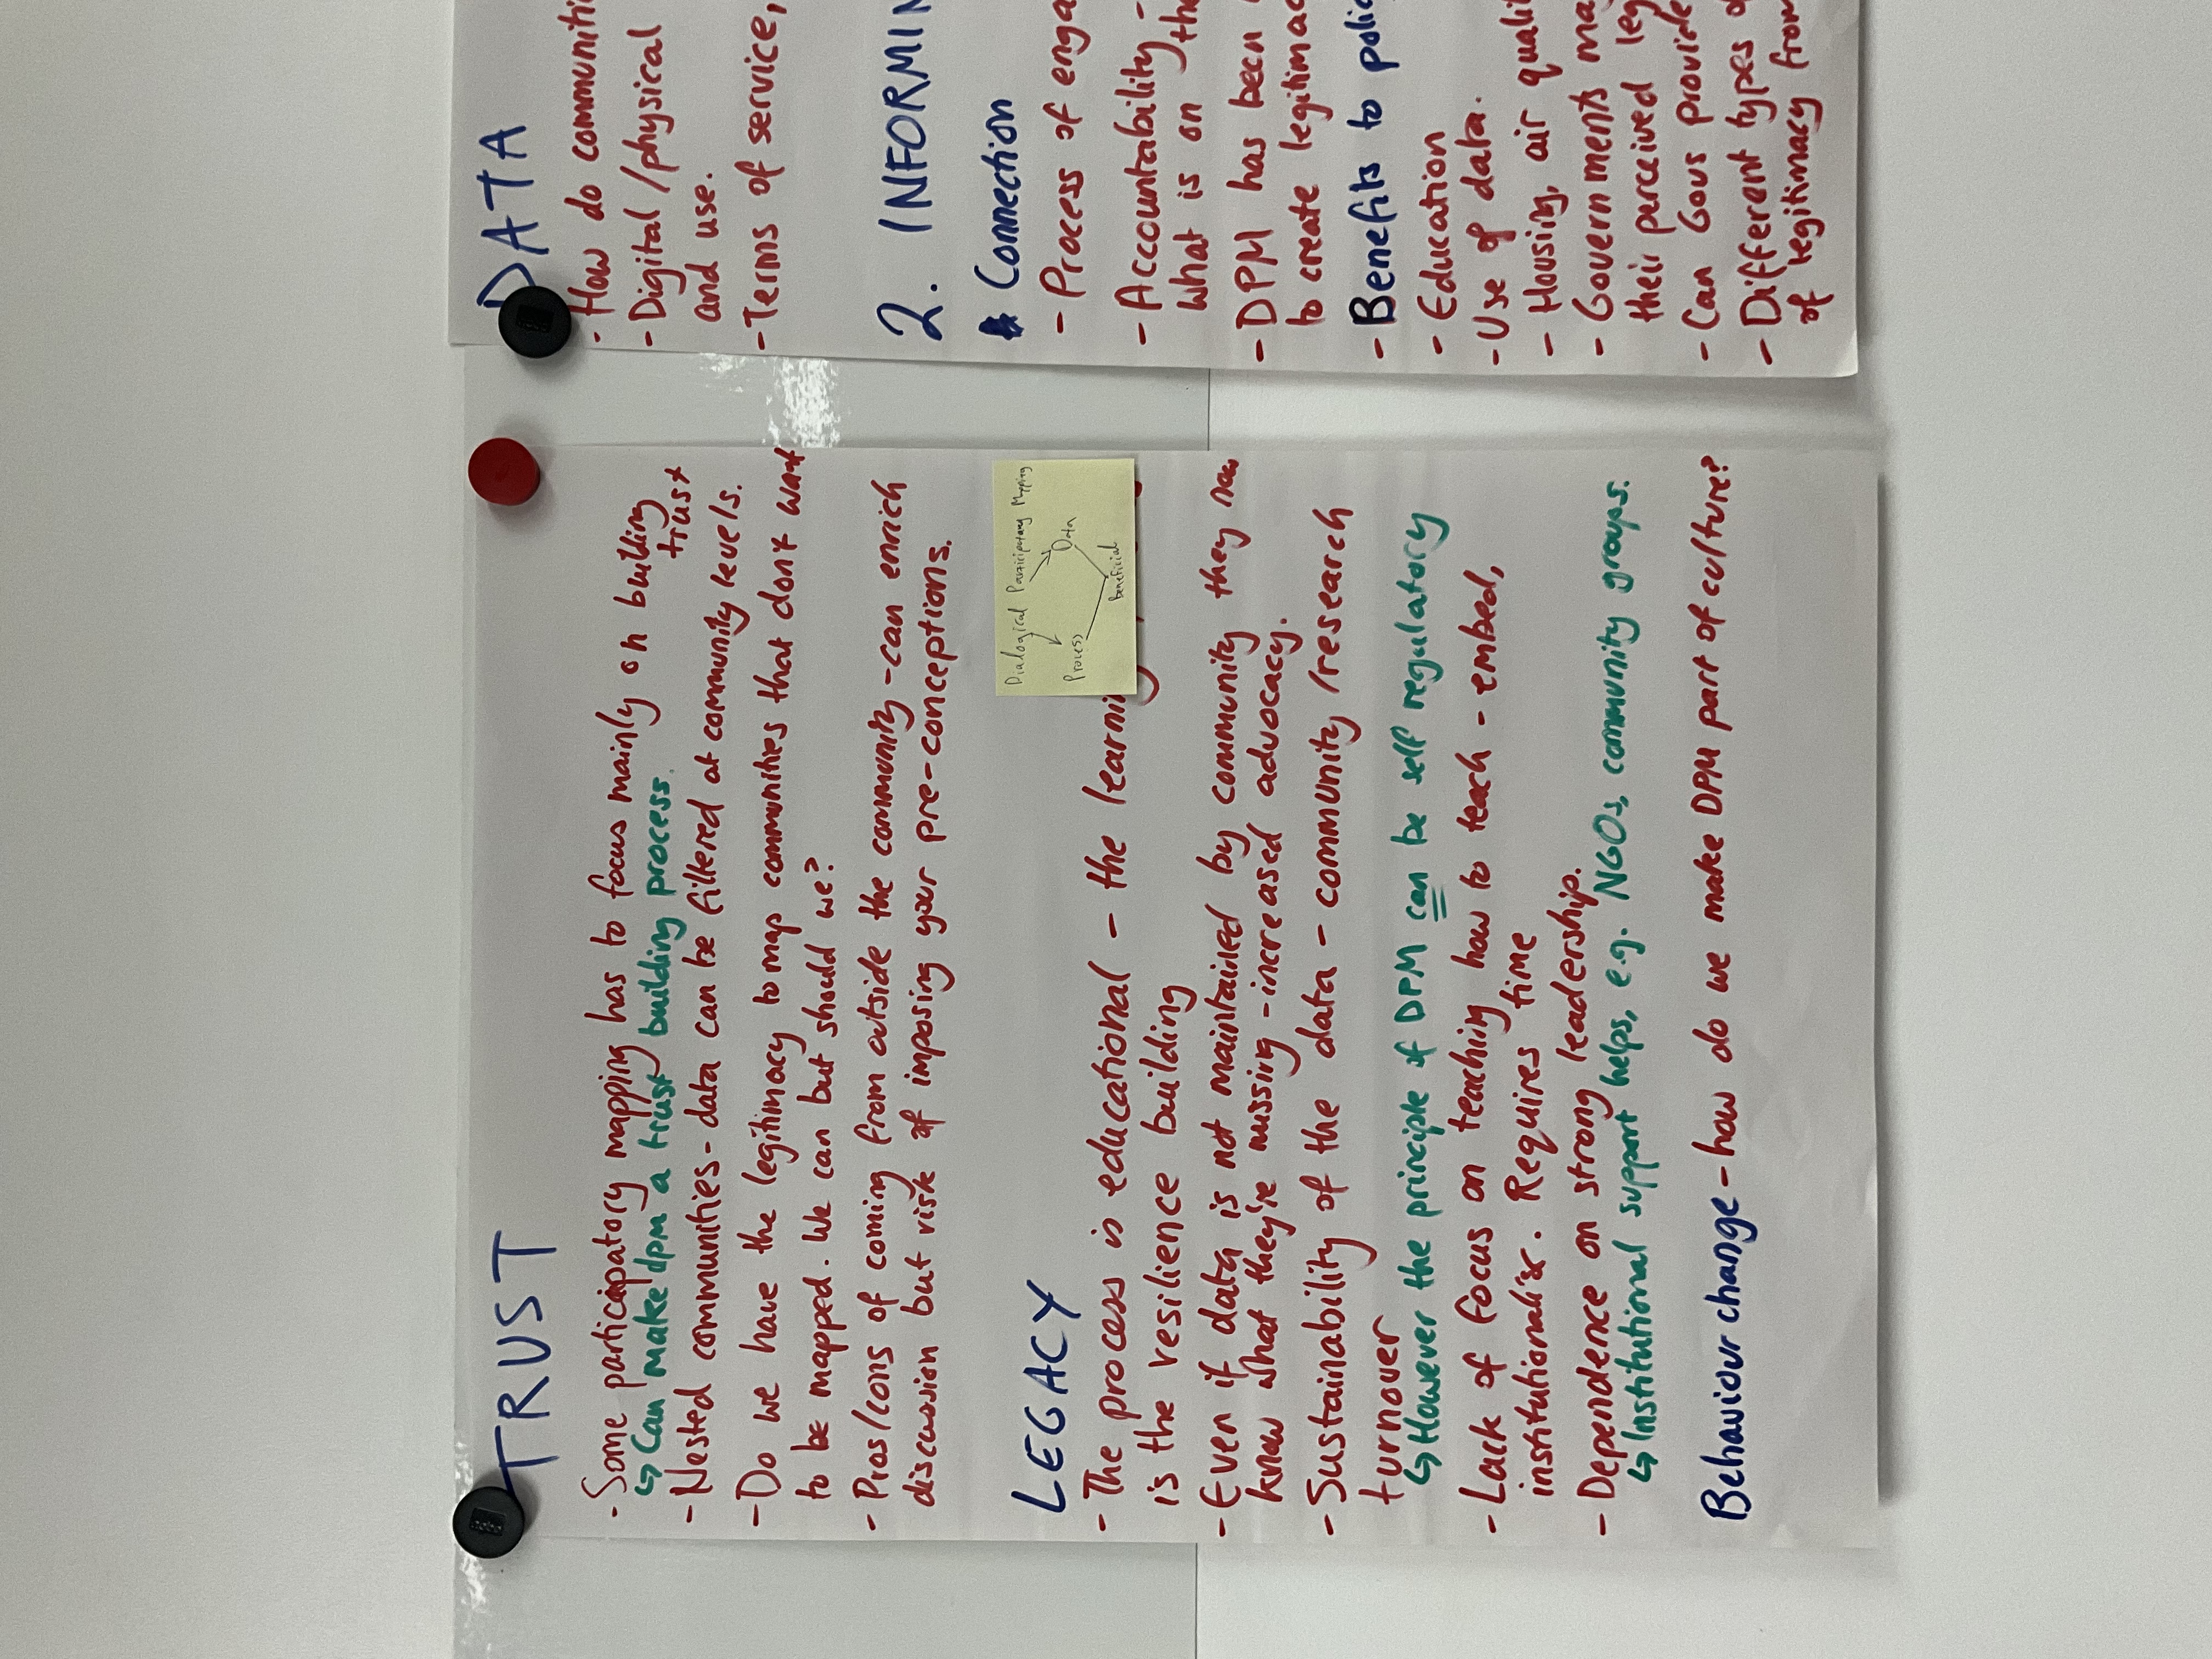 TRUST
- Some particapatory mapping has to focus mainly on building
trust
↳ Can make dpm a trust building process.
- Nested communities - data can be filtered at community levels.
- Do we have the legitimacy to map communities that don't want
to be mapped. We can but should we?
- Pros/cons of coming from outside the community - can enrich
discussion but risk of imposing your pre-conceptions.
LEGACY
- The process is educational - the
is the resilience building
- Even if data is not maintained by community they
know what they're missing - increased advocacy.
- Sustainability of the data - community/research
turnover
↳ However the principle of DPM can be self regulatory
- Lack of focus on teaching how to teach - embed,
institutionalise. Requires time
- Dependence on strong leadership.
↳ Institutional support helps, e.g. NGOs, community groups.
Behaviour change - how do we make DPM part of culture?
Dialogical Participatory Mapping
Process
Data
beneficial
DATA
- How do communiti
- Digital/physical
and use.
- Terms of service,
2. INFORMIN
Connection
- Process of enga
- Accountability -
what is on the
- DPM has been
to create legitimac
- Benefits to polic
- Education
- Use of data.
- Housing, air qualit
- Governments ma
their perceived leg
- Can Govs provide
- Different types of
of legitimacy from